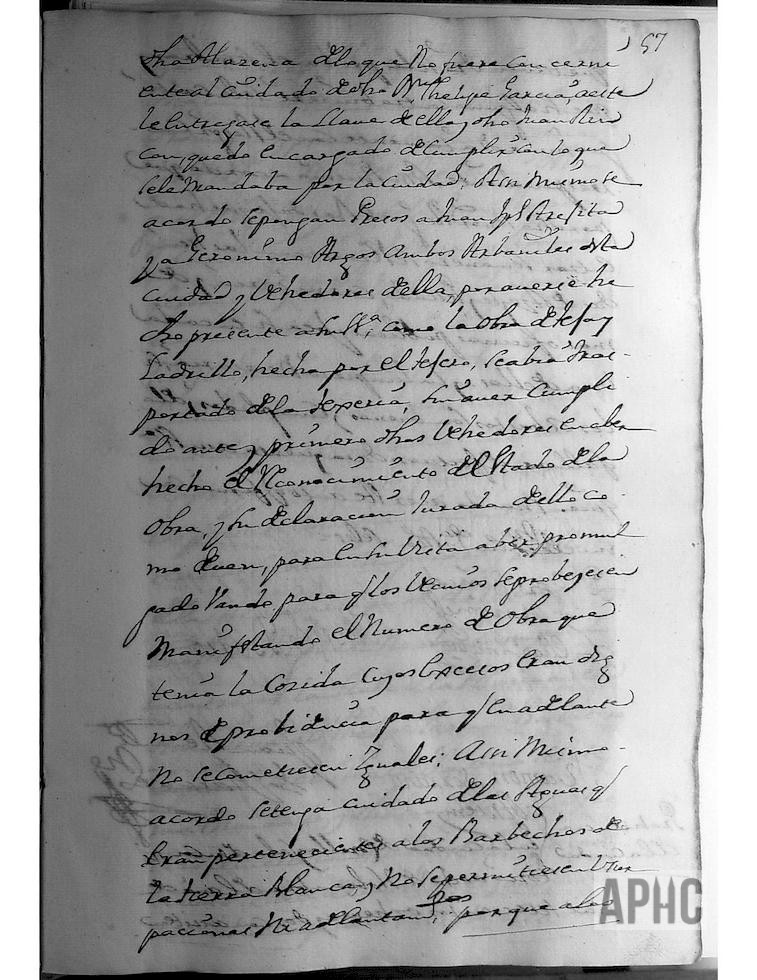 157
dha Alazena de lo que no fuere concerni
ente al Cuidado de dho Dn. Phelipe Garcia, a este
le entregase la Llave de ella, y dho Juan
con, quedo encargado de Cumplir con lo que
se le Mandaba por la Ciudad; Assi mismo se
acordo se pongan Presos a Juan Jph
y a Geronimo Argos ambos Arbañiles desta
Ciudad y Vehedores della, por averse he
cho presente a su como la obra de teja y
Ladrillo, hecha por el tejero, se abia tras
portado de la texeria, sin aver Cumpli
do ante y primero dhos Vehedores en aber
hecho el Reconocimiento del Estado de la
Obra, y su declaracion Jurada dello co
mo deven, para en su Vista aber promul
gado Vando para q los Vecinos se probeyesen
Manifestando el Numero de Obra que
tenia la Cozida Cuyos Excesos Eran dig
nos de probidencia para q en adelante
No se Cometiesen Yguales; Assi Mismo
acordo se tenga cuidado de las Aguas q
Eran pertenecientes a los Barbechos de
la tierra Blanca, y No se permitiesen Usur
paciones Ni adelantam.tos porque a los
APHC